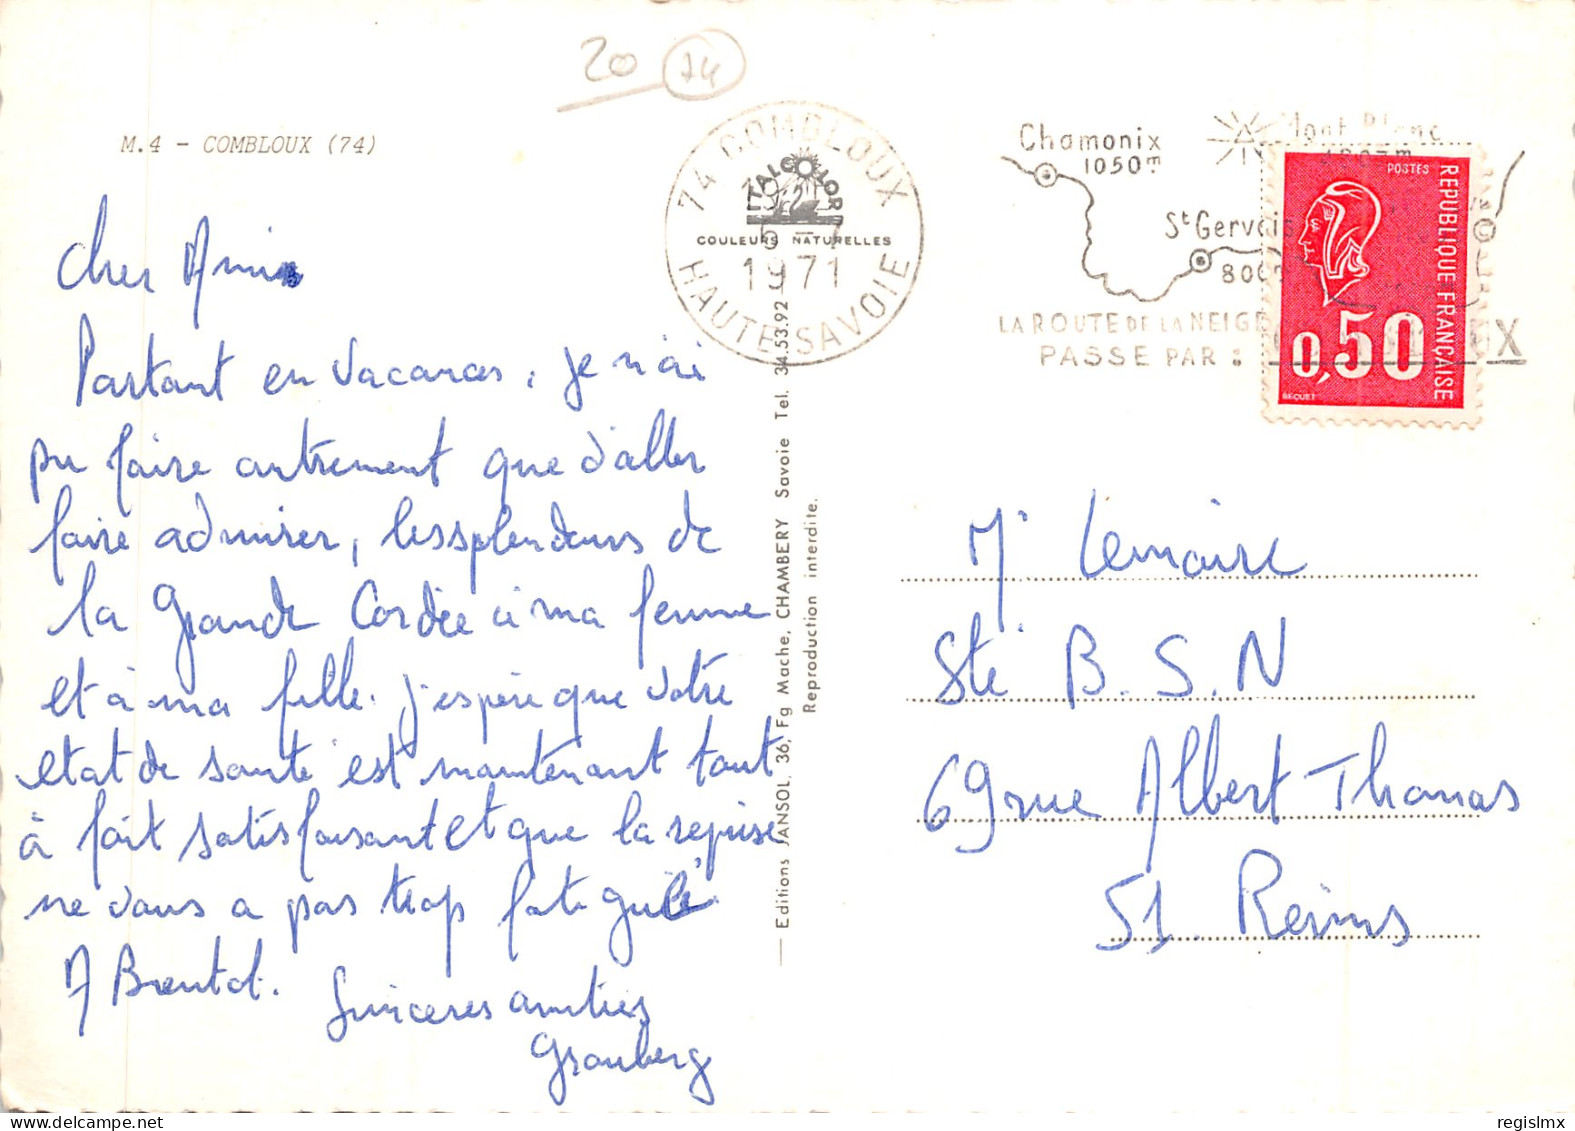 20 74
M.4 - COMBLOUX (74)
Cher Ami
Partant en vacances, je n'ai
pu faire autrement que d'aller
faire admirer, les splendeurs de
la Grande Cordée à ma femme
et à ma fille. J'espère que votre
etat de santé est maintenant tout
à fait satisfaisant et que la reprise
ne vous a pas trop fatigué
A Bientot.
Sincères amitiés
Grauberg
74 COMBLOUX
ITALCOLOR
COULEURS NATURELLES
1971
HAUTE-SAVOIE
Editions JANSOL, 36, Fg Mache, CHAMBERY Savoie Tel. 34.53.92
Reproduction interdite.
Chamonix
1050m
Mont Blanc
4807m
St Gervais
LA ROUTE DE LA NEIGE
PASSE PAR :
POSTES
REPUBLIQUE FRANÇAISE
0,50
BEQUET
Mr Lemaire
Sté B.S.N
69 rue Albert Thomas
51. Reims
delcampe.net
regislmx